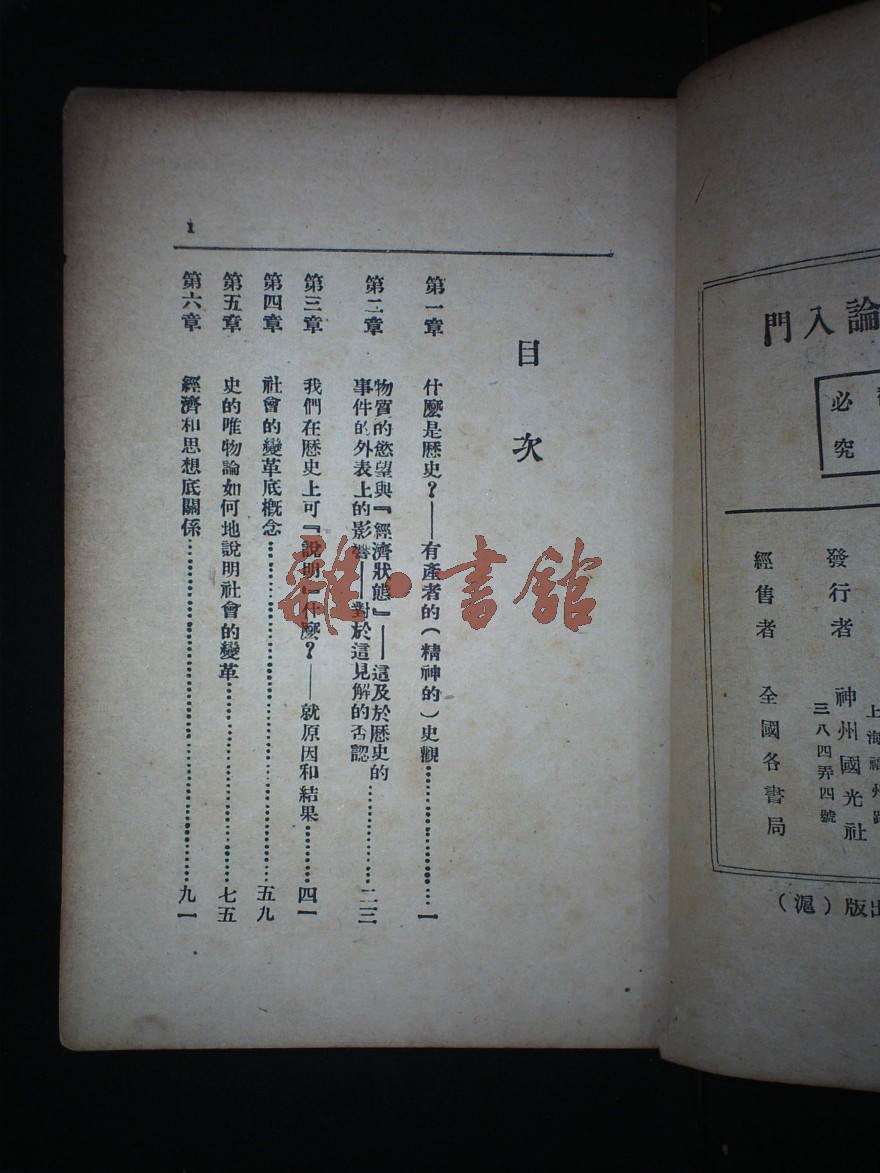 論入門
必究
發行者 神州國光社
上海福州路
三八四弄四號
經售者 全國各書局
出版（滬）
1
目次
第一章 什麼是歷史？——有產者的（精神的）史觀……………一
第二章 物質的慾望與『經濟狀態』——這及於歷史的
事件的外表上的影響——對於這見解的否認……………二三
第三章 我們在歷史上可『說明』什麼？——就原因和結果……………四一
第四章 社會的變革底概念……………五九
第五章 史的唯物論如何地說明社會的變革……………七五
第六章 經濟和思想底關係……………九一
雜·書館